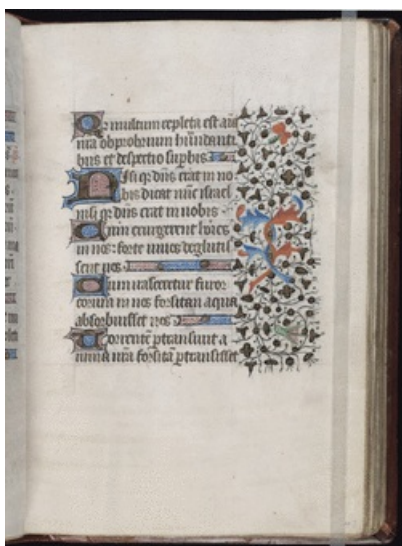 Quia multum repleta est aīa
nr̄a obprobrium habundanti
bus et despectio superbis
Nisi qr̄ dn̄s erat in no
bis dicat nūc israel
nisi qr̄ dn̄s erat in nobis
Cum exurgerent hōīes
in nos: forte vivos deglutis
sent nos
Cum irasceretur furor
eorum in nos forsitan aqua
absorbuisset nos
Torrentē ꝑtransivit a
nima nr̄a forsitā ꝑtransisset